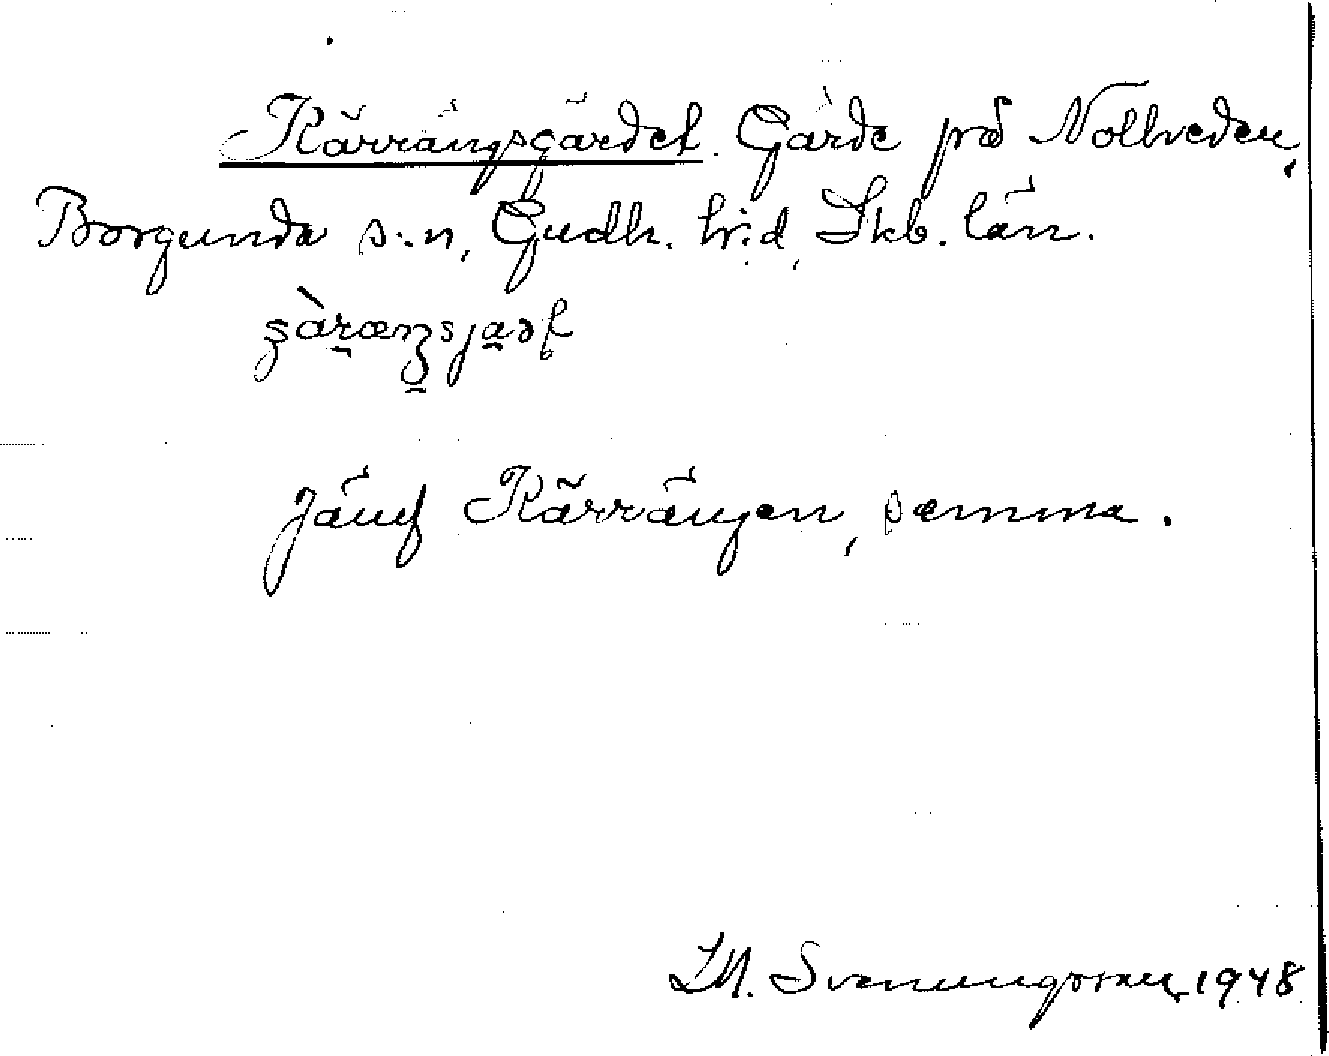 Kärrängsgärdet. Gärde på Nolbveden,
Borgunda s:n, Gudh. h:d, Skb. län.
Jämf Kärrängen, samma.
LM. Svenungsson, 1948